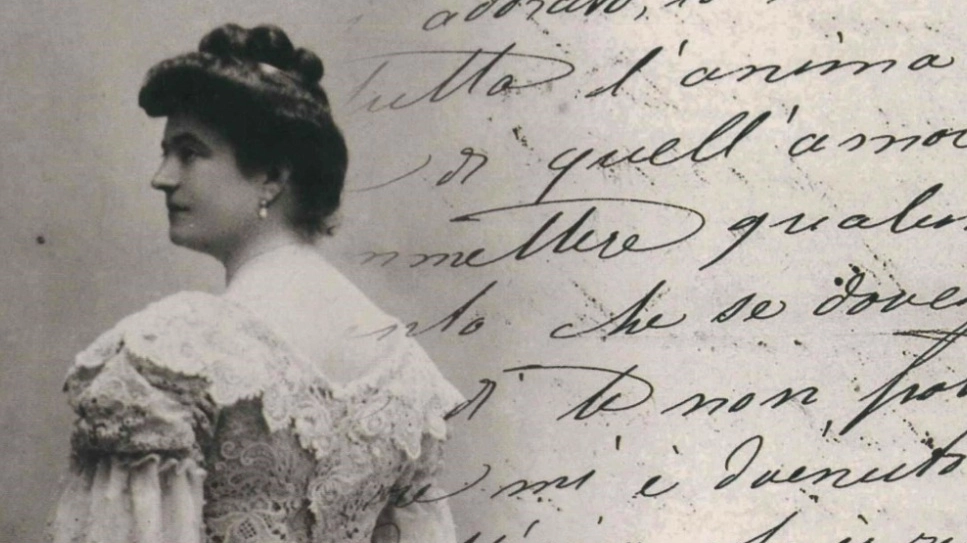 adorato, io
tutta l'anima
di quell'amo
mettere qualun
nto che se dove
di te non po
me mi è divenuto